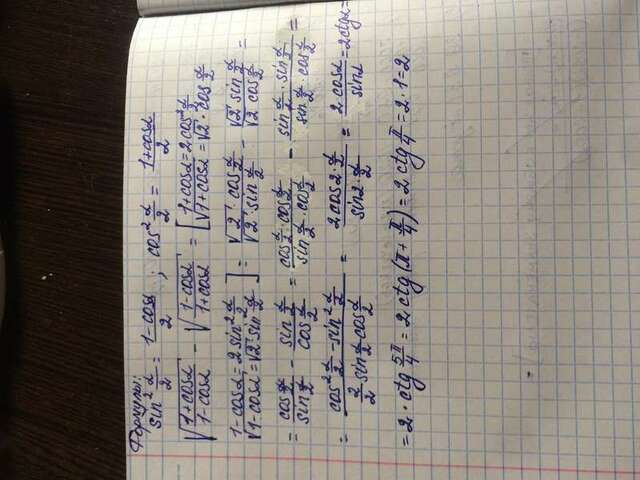 Формулы:
sin² α/2 = (1-cosα)/2 ; cos² α/2 = (1+cosα)/2
√((1+cosα)/(1-cosα)) - √((1-cosα)/(1+cosα)) = [1+cosα = 2cos² α/2
√(1+cosα) = √2 · cos α/2
1-cosα = 2 sin² α/2
√(1-cosα) = √2 sin α/2] = (√2 · cos α/2)/(√2 · sin α/2) - (√2 sin α/2)/(√2 cos α/2) =
= (cos α/2)/(sin α/2) - (sin α/2)/(cos α/2) = (cos α/2 · cos α/2)/(sin α/2 · cos α/2) - (sin α/2 · sin α/2)/(sin α/2 · cos α/2) =
= (cos² α/2 - sin² α/2)/(2/2 sin α/2 cos α/2) = (2cos2 · α/2)/(sin2 · α/2) = (2cosα)/(sinα) = 2ctgα =
= 2 · ctg 5π/4 = 2ctg(π + π/4) = 2ctg π/4 = 2 · 1 = 2